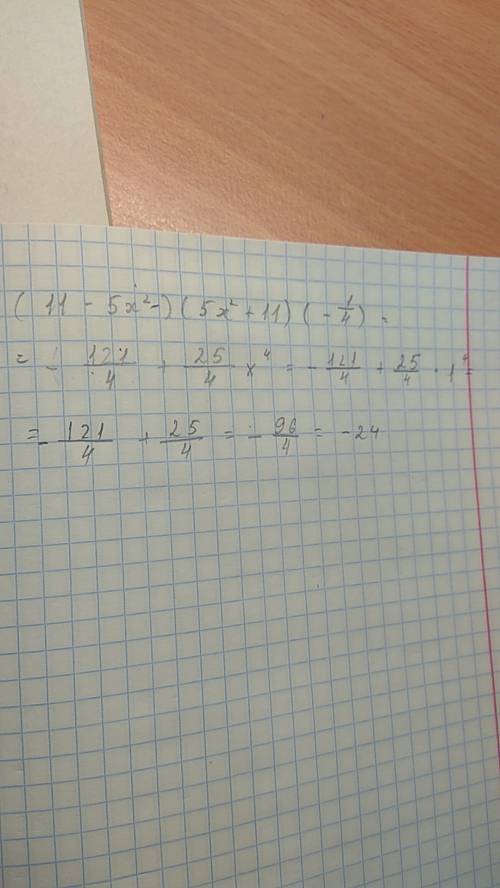 ( 11 - 5x²-) ( 5x² + 11) ( - 1/4) =
= - 121/4 + 25/4 x⁴ = - 121/4 + 25/4 · 1⁴ =
= - 121/4 + 25/4 = - 96/4 = -24